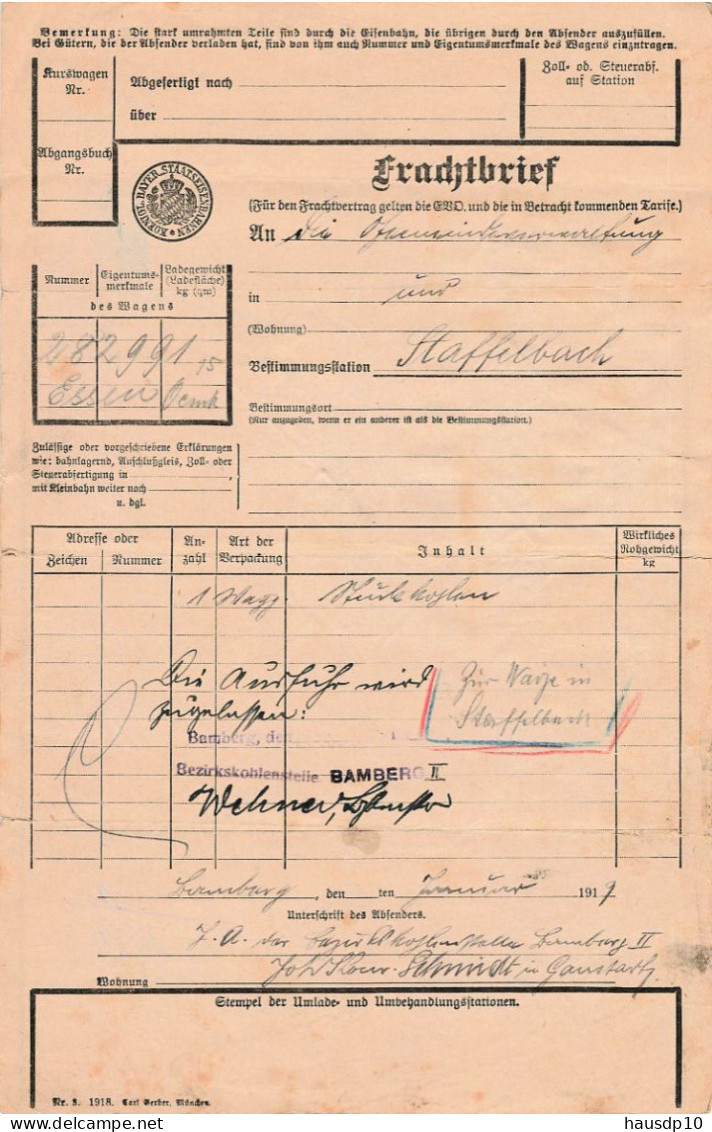 Bemerkung: Die stark umrahmten Teile sind durch die Eisenbahn, die übrigen durch den Absender auszufüllen.
Bei Gütern, die der Absender verladen hat, sind von ihm auch Nummer und Eigentumsmerkmale des Wagens einzutragen.
Kurswagen
Nr.
Abgefertigt nach
über
Zoll- od. Steuerabf.
auf Station
Abgangsbuch
Nr.
KOENIGL. BAYER. STAATSEISENBAHNEN
Frachtbrief
(Für den Frachtvertrag gelten die EVO. und die in Betracht kommenden Tarife.)
An die Gemeindeverwaltung
in und
(Wohnung)
Bestimmungsstation Staffelbach
Bestimmungsort
(Nur anzugeben, wenn er ein anderer ist als die Bestimmungsstation.)
Nummer
Eigentums-
merkmale
Ladegewicht
(Ladefläche)
kg (qm)
des Wagens
282991 15
Essen
Zulässige oder vorgeschriebene Erklärungen
wie: bahnlagernd, Anschlußgleis, Zoll- oder
Steuerabfertigung in
mit Kleinbahn weiter nach
u. dgl.
Adresse oder
Zeichen
Nummer
An-
zahl
Art der
Verpackung
Inhalt
Wirkliches
Rohgewicht
kg
1 Wagg. Stückkohlen
Die Ausfuhr wird
zugelassen:
Zur Waize in
Staffelbach
Bamberg, den
Bezirkskohlenstelle BAMBERG II
Wehner,
Bamberg, den ten Januar 1919
Unterschrift des Absenders.
J. A. der Bezirkskohlenstelle Bamberg II
Schmidt in
Wohnung
Stempel der Umlade- und Umbehandlungsstationen.
Nr. 3. 1918. Carl Gerber, München.
hausdp10